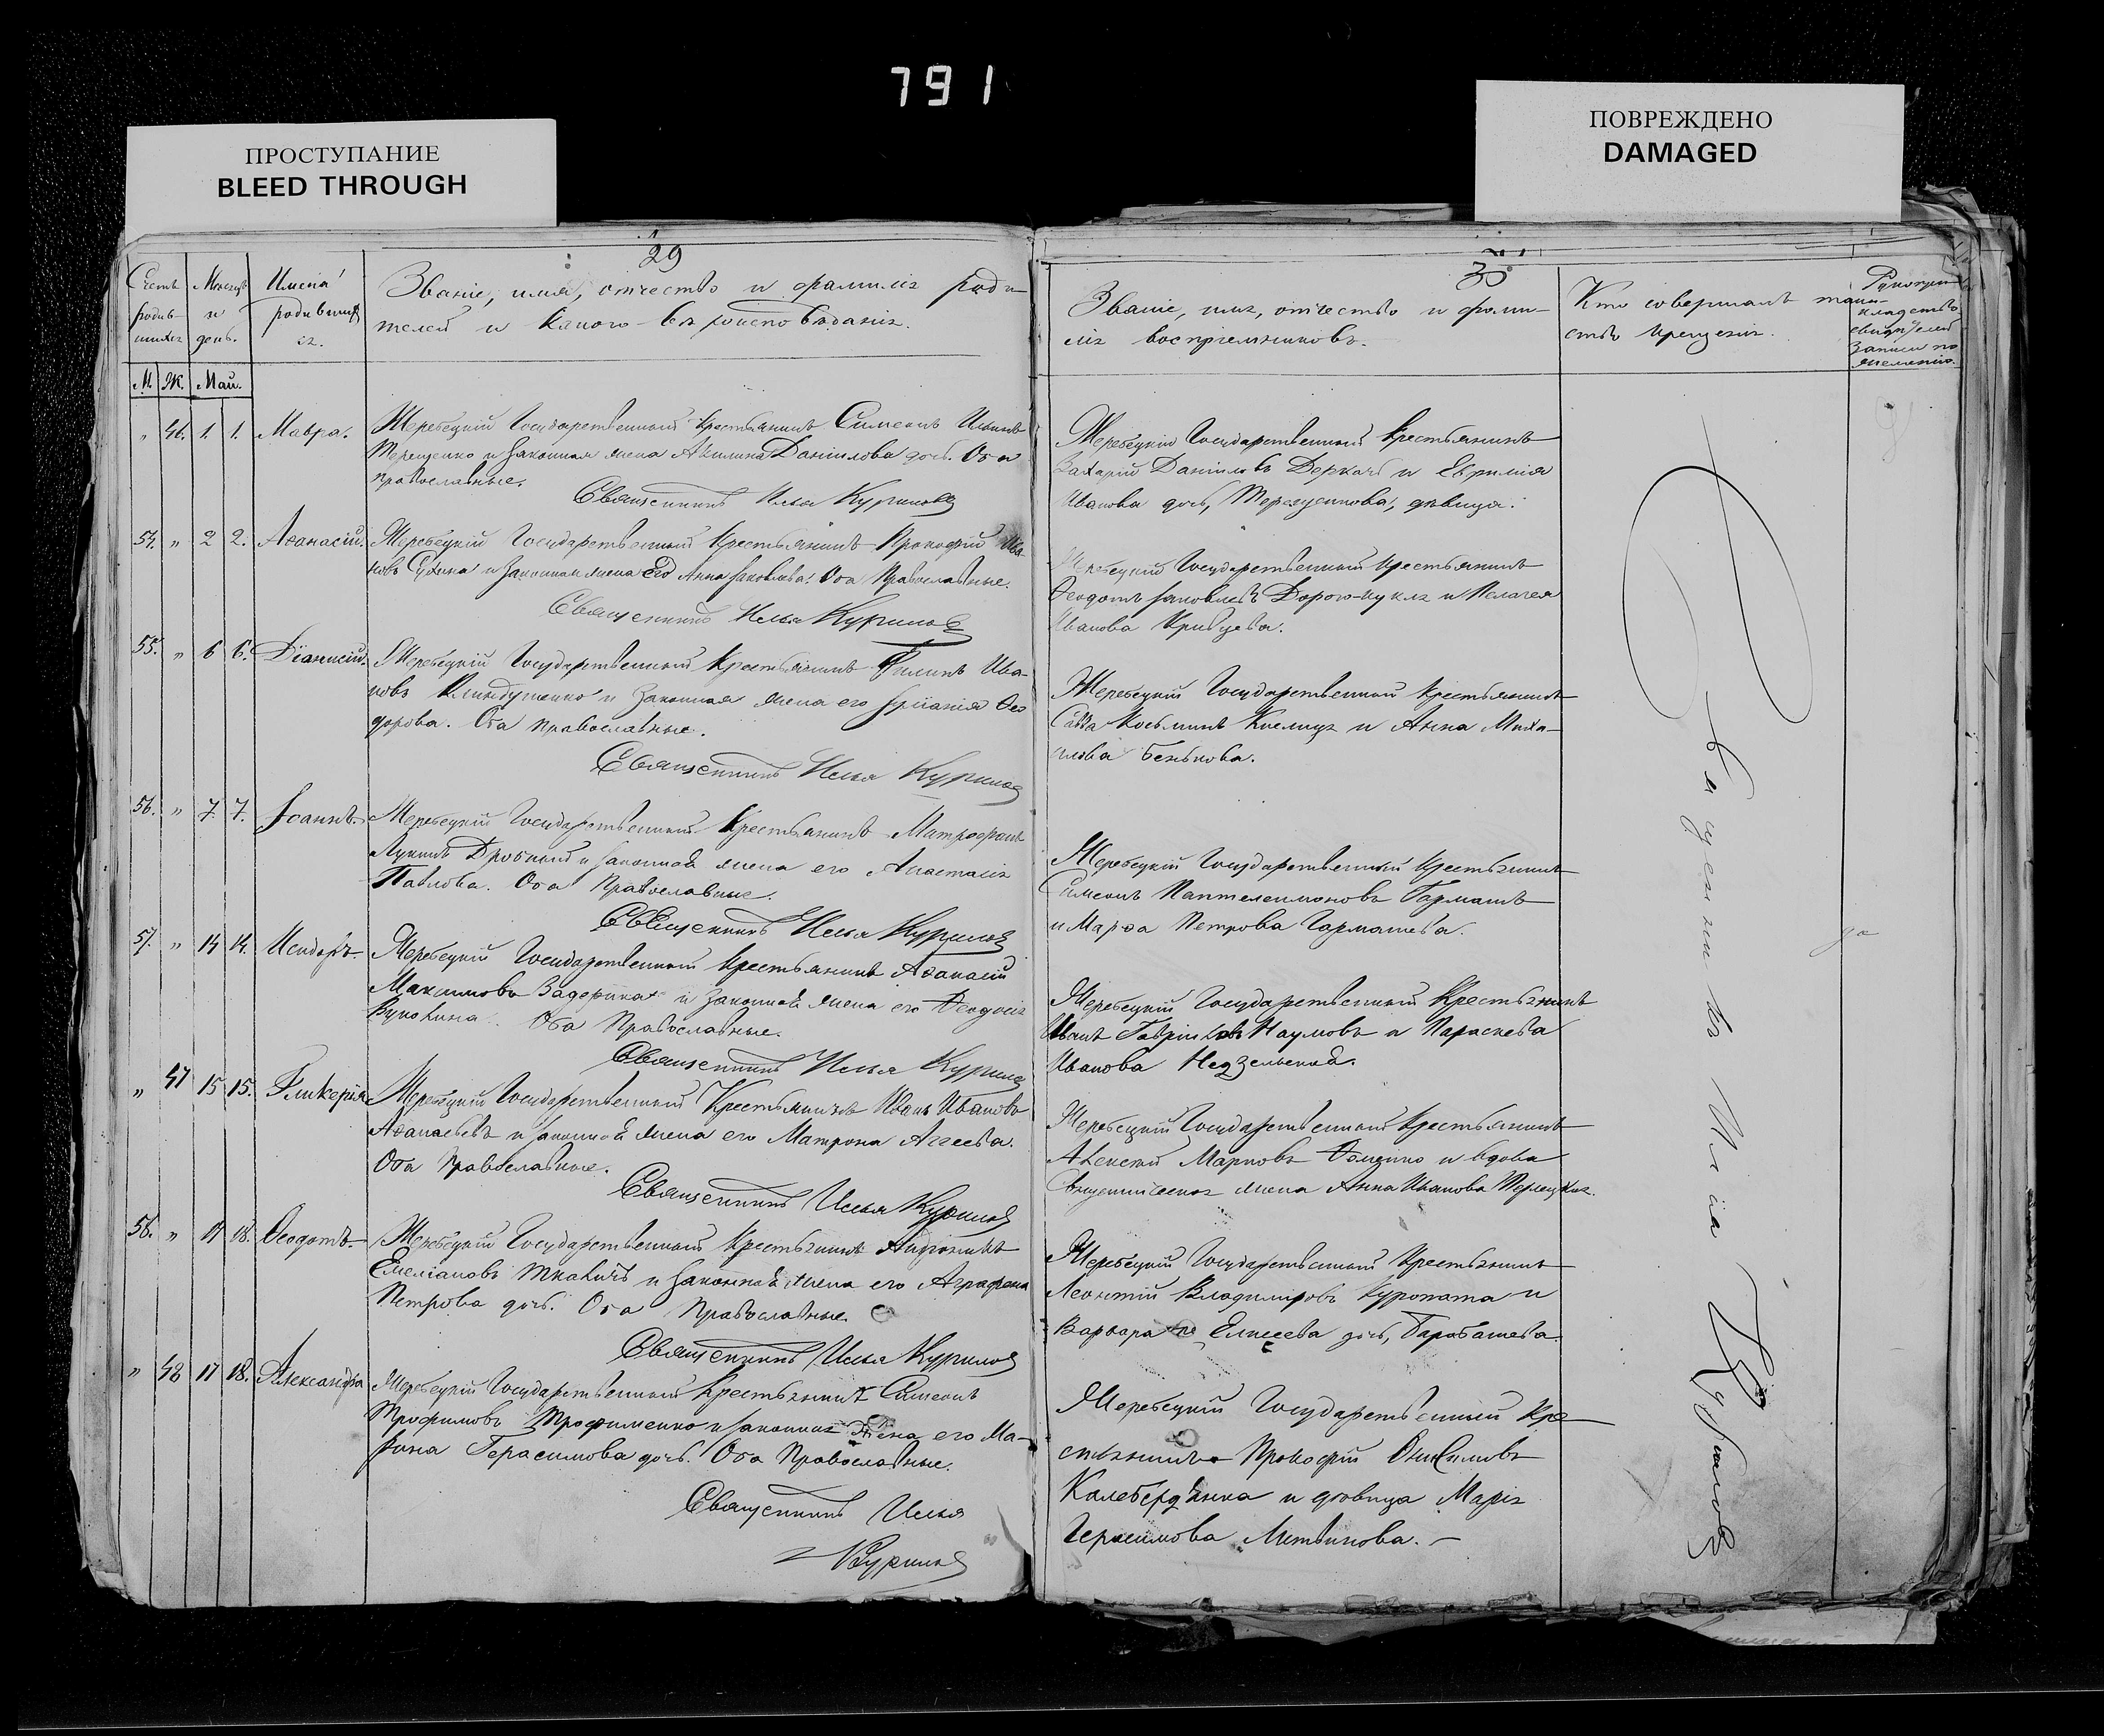 791
ПРОСТУПАНИЕ
BLEED THROUGH
ПОВРЕЖДЕНО
DAMAGED
29
Счетъ родив-шихся
Мѣсяцъ и день.
Имена родившихся.
Званіе, имя, отчество и фамилія роди-
телей и какого вѣроисповѣданія.
М. Ж. Май.
" 46. 1. 1. Мавра.
Жеребецкій Государственный крестьянинъ Симеонъ Ильинъ
Терещенко и законная жена Акилина Даніилова дочь. Оба
православные.
Священникъ Илья Куриловъ
54. " 2 2. Аѳанасій.
Жеребецкій Государственный Крестьянинъ Прокофій Ива-
новъ и законная жена его Анна Іаковлева. Оба Православные.
Священникъ Илья Куриловъ
55. " 6 6. Діанисій.
Жеребецкій Государственный Крестьянинъ Филипъ Ива-
новъ и законная жена его Ѳео
дорова. Оба православные.
Священникъ Илья Куриловъ
56. " 7. 7. Іоаннъ.
Жеребецкій Государственный Крестьянинъ Митрофанъ
Лукинъ Дробный и законная жена его Анастасія
Павлова. Оба Православные.
Священникъ Илья Куриловъ
57. " 14 14. Исидоръ.
Жеребецкій Государственный Крестьянинъ Аѳанасій
Максимовъ и законная жена его Ѳеодосія
Оба Православные.
Священникъ Илья Куриловъ
" 47 15 15. Гликерія
Жеребецкій Государственный Крестьянинъ Иванъ Ивановъ
Аѳанасьевъ и законная жена его Матрона Аггеева.
Оба Православные.
Священникъ Илья Куриловъ
58. " 17 18. Ѳеодотъ.
Жеребецкій Государственный Крестьянинъ
Емеліановъ Ткачичъ и законная жена его Аграфена
Петрова дочь. Оба Православные.
Священникъ Илья Куриловъ
" 48 17 18. Александра
Жеребецкій Государственный Крестьянинъ Симеонъ
Трофимовъ Трофименко и законная жена его Ма-
рина Герасимова дочь. Оба Православные.
Священникъ Илья
Куриловъ
30
Званіе, имя, отчество и фами-
лія воспріемниковъ.
Кто совершалъ таин-
ство крещенія.
Рукопри-
кладство
свидѣтелей
записи по
желанію.
Жеребецкій Государственный Крестьянинъ
Захарій Даніиловъ Деркачъ и Евфимія
Иванова дочь, дѣвица.
Жеребецкій Государственный крестьянинъ
Ѳеодотъ Іаковлевъ и Пелагея
Иванова Кривцева.
Жеребецкій Государственный Крестьянинъ
Савва Косьминъ и Анна Миха-
илова Бенькова.
Жеребецкій Государственный Крестьянинъ
Симеонъ Пантелеимоновъ Гармашъ
и Марѳа Петрова Гармашева.
Жеребецкій Государственный Крестьянинъ
Иванъ Гавріиловъ Наумовъ и Параскева
Иванова
Жеребецкій Государственный Крестьянинъ
Алексій Марковъ и вдова
Священническая жена Анна Иванова
Жеребецкій Государственный Крестьянинъ
Леонтій Владиміровъ Куропата и
Варвара Елисеева дочь, Барабашева.
Жеребецкій Государственный Кре-
стьянинъ Прокофій Онисимовъ
и дѣвица Марія
Герасимова Литвинова.
Священникъ Илія Куриловъ